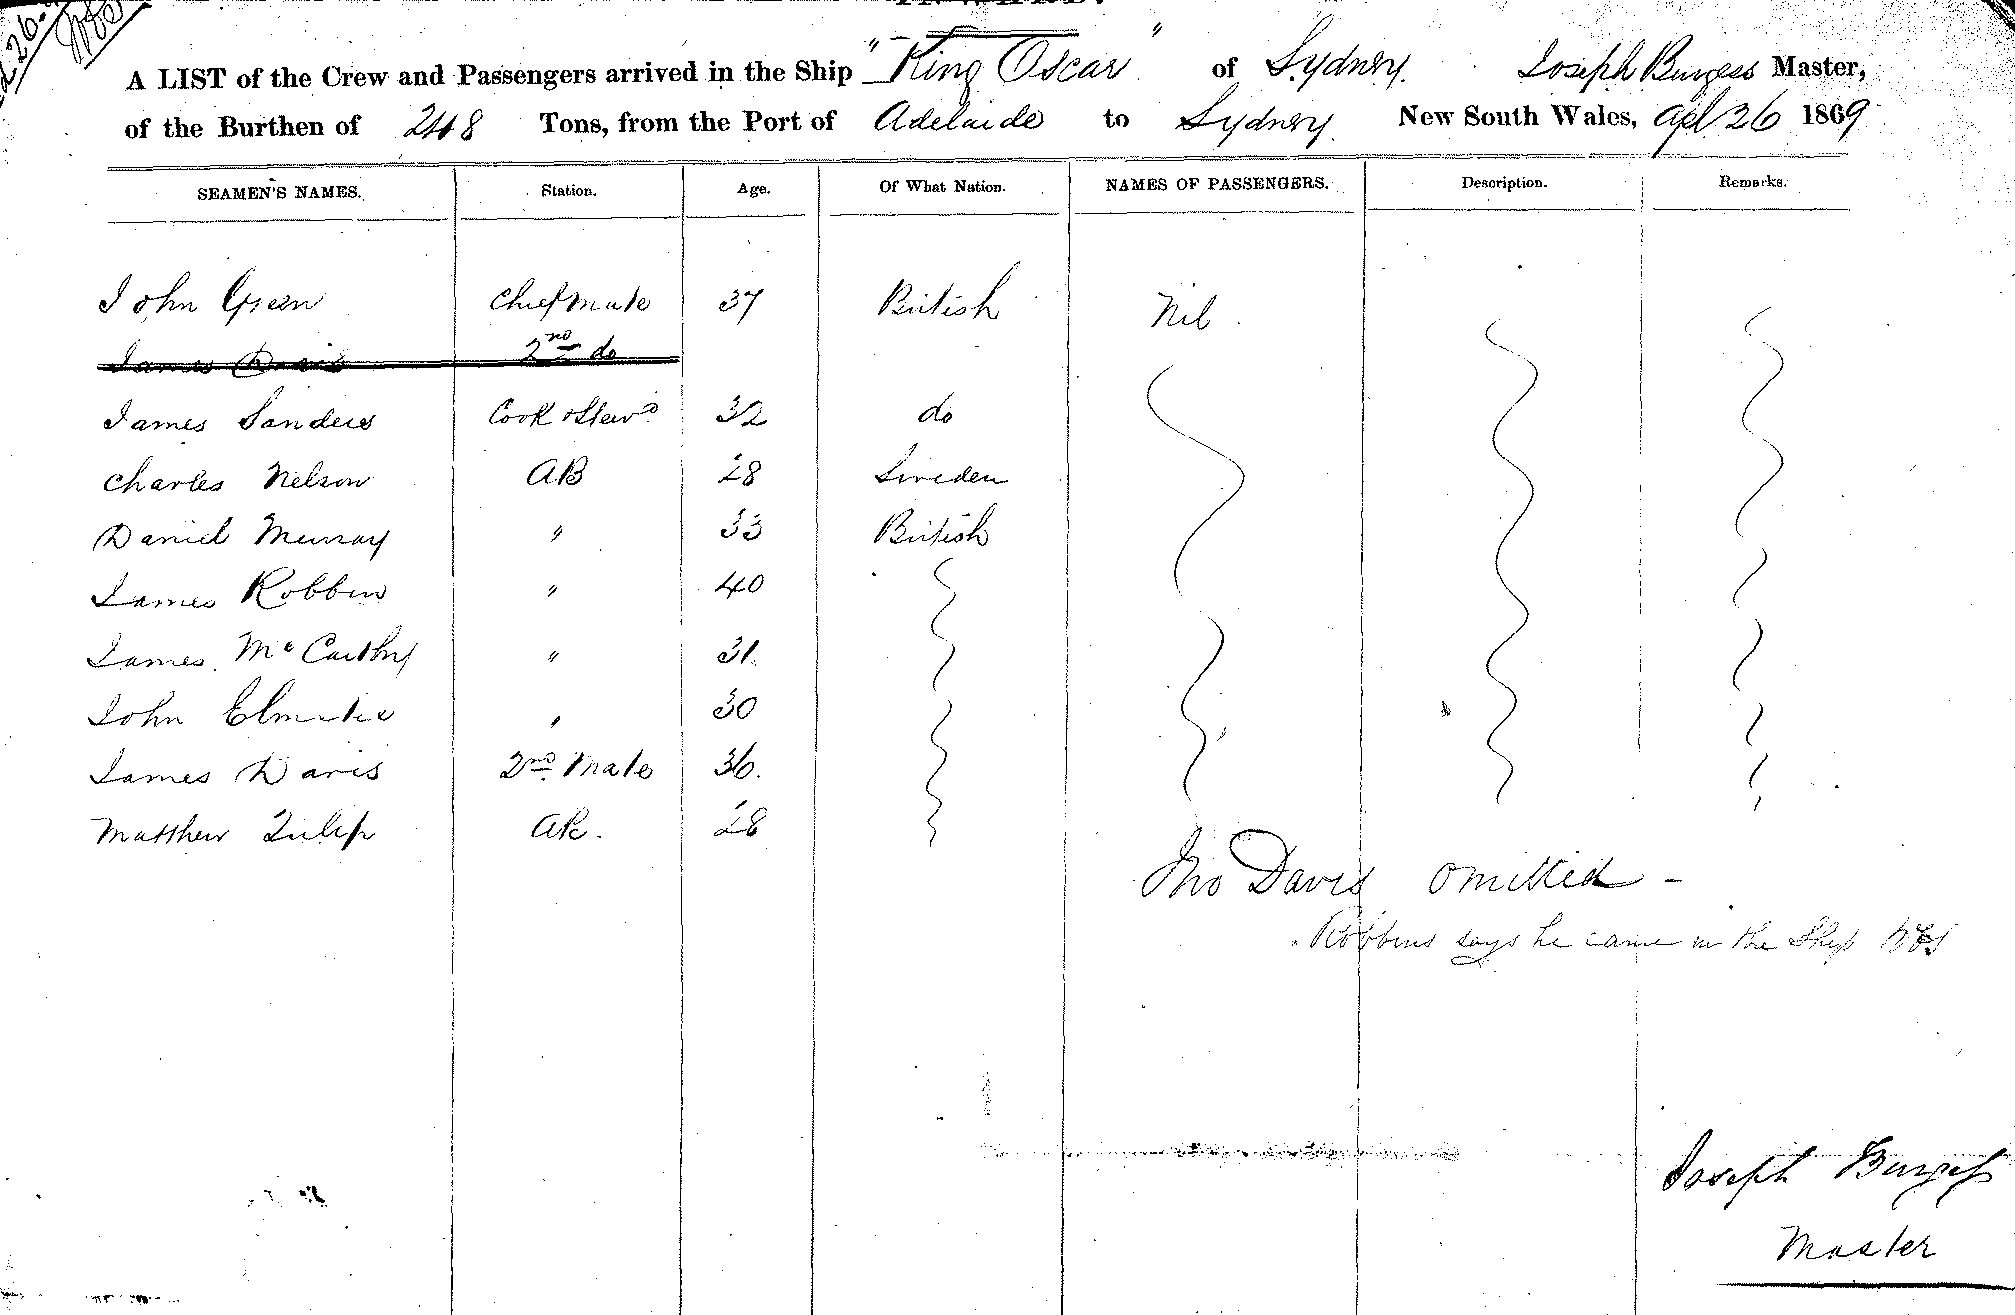 INWARD.
A LIST of the Crew and Passengers arrived in the Ship "King Oscar" of Sydney. Joseph Burgess Master,
of the Burthen of 248 Tons, from the Port of Adelaide to Sydney. New South Wales, Apl 26 1869
SEAMEN'S NAMES. Station. Age. Of What Nation. NAMES OF PASSENGERS. Description. Remarks.
John Green Chief Mate 37 British Nil.
James Davis 2nd do
James Sanders Cook & Stewd 32 do
Charles Nelson AB 28 Sweden
Daniel Murray " 33 British
James Robbin " 40
James McCarthy " 31.
John " 30
James Davis 2nd Mate 36.
Matthew Tulip AB. 28
Jno Davis omitted -
Robbins says he came in the Ship
Joseph Burgess
Master